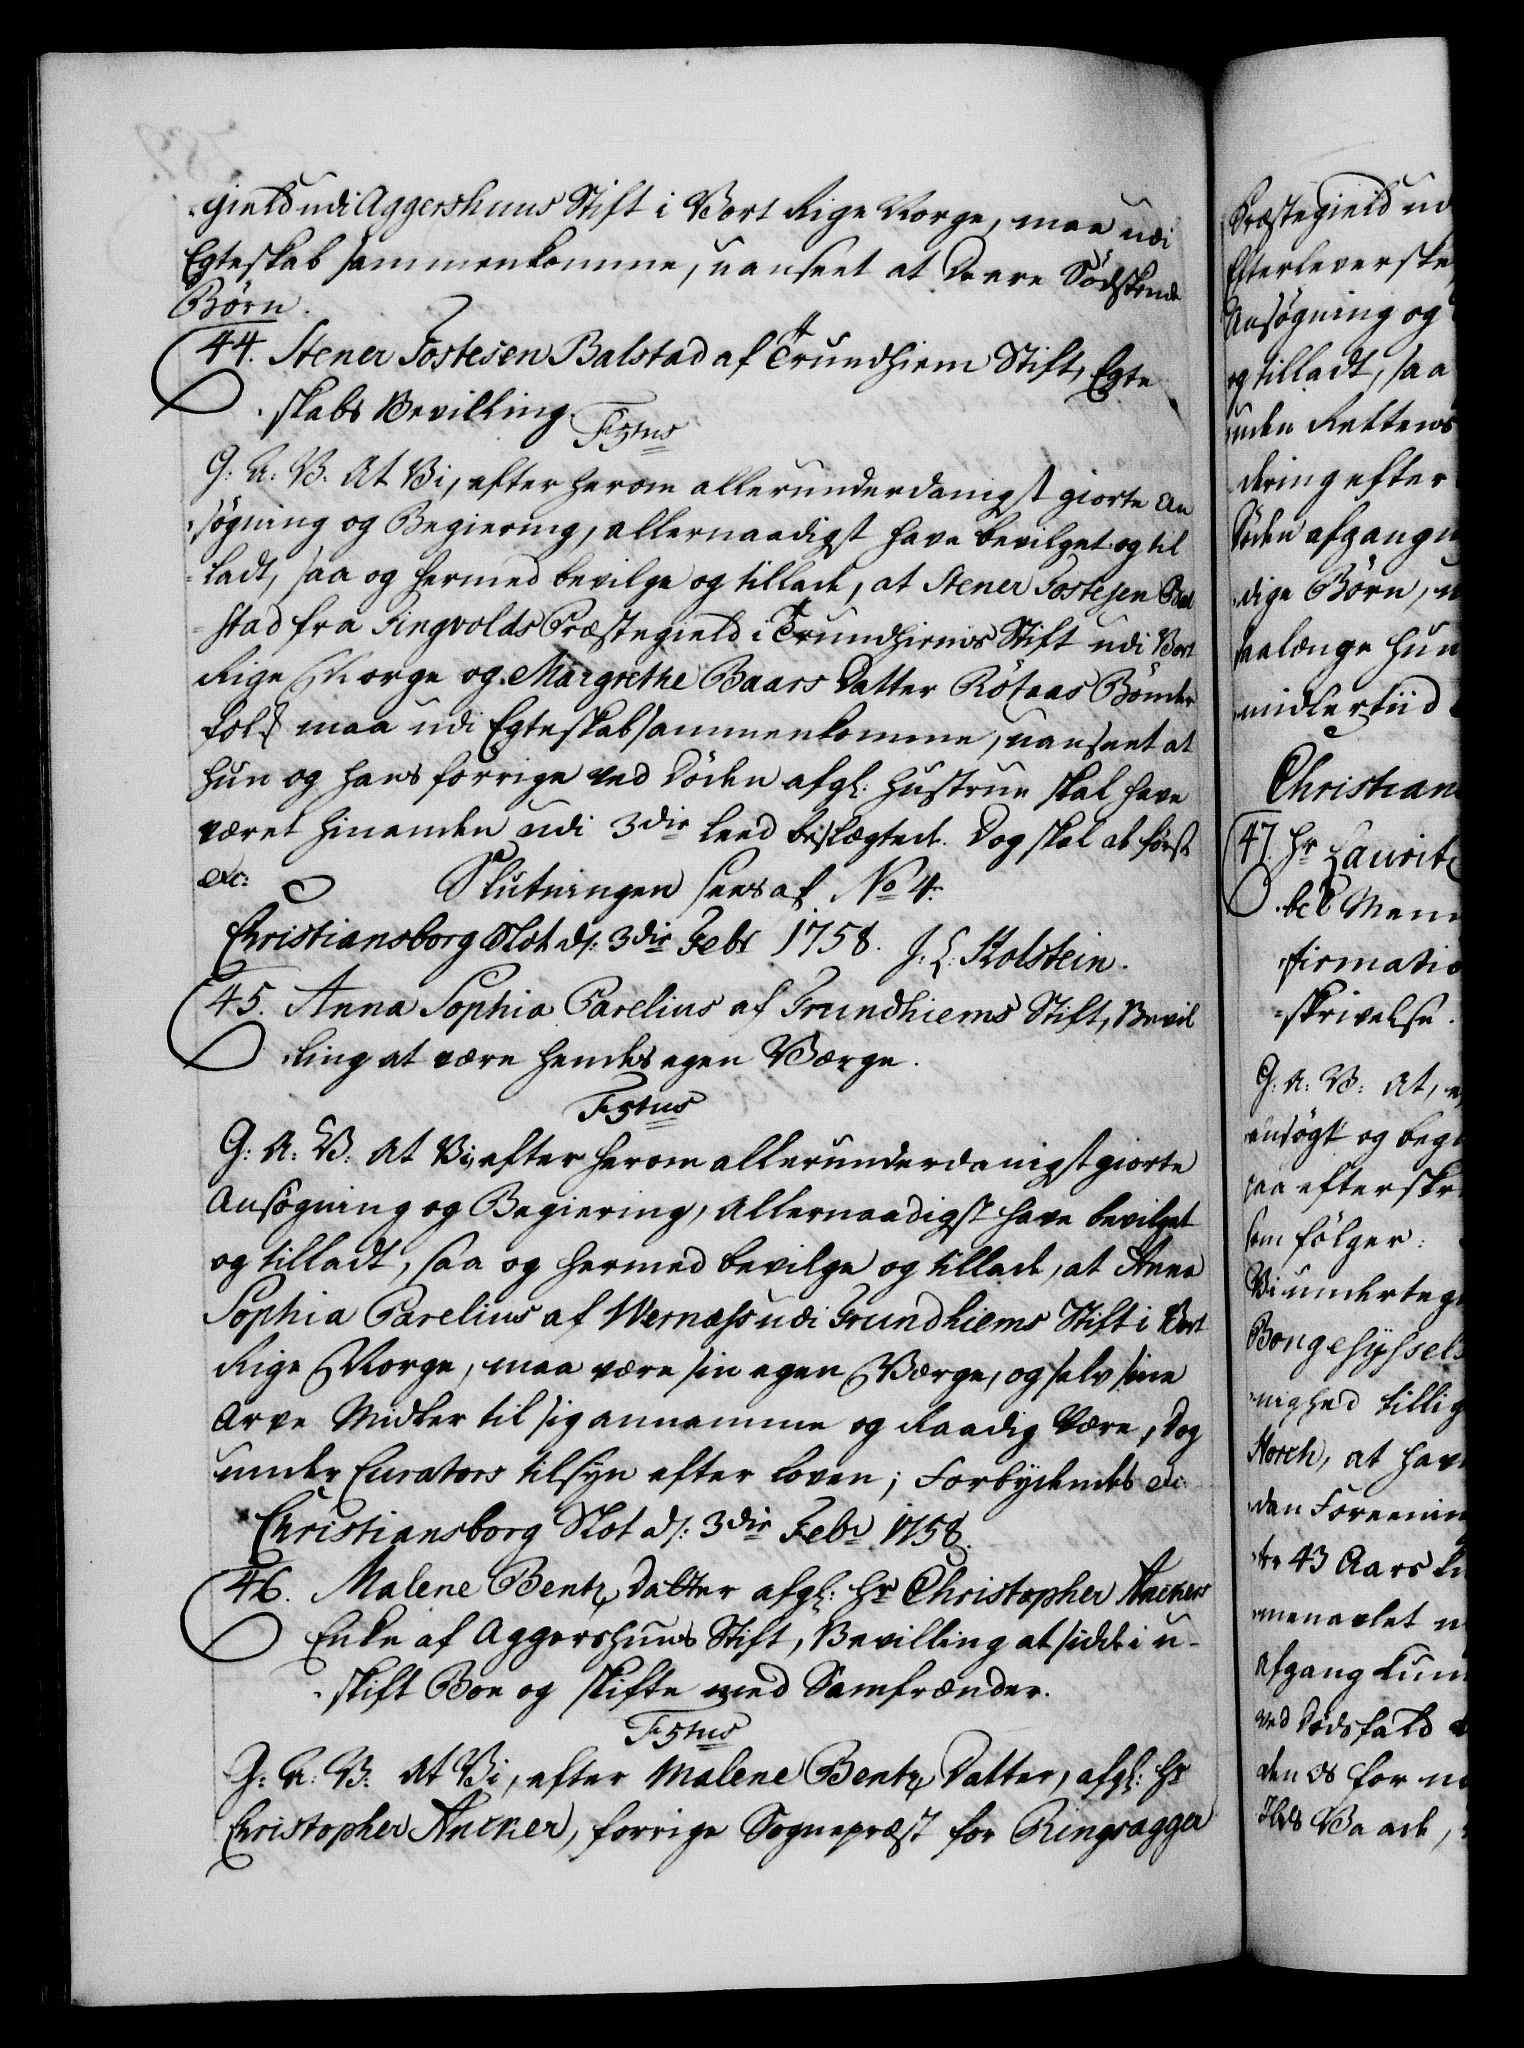 gield udi Aggershuus Stift i Vort Rige Norge, maa udi
Egteskab sammenkomme, uanseet at De ere Södskende
Börn.
44. Stener Tostesen Balstad af Trundhiem Stift, Egte
skabs Bevilling.
F5tus
G: A: V: At Vi, efter herom allerunderdanigst giorte An
søgning og Begiering, allernaadigst have bevilget og til
ladt, saa og hermed bevilge og tillade, at Stener Tostesen Bal
stad fra Tingvolds Præstegield i Trundhiems Stift udi Vort
Rige Norge og Margrethe Baars Datter Rötaas Bönder
folk maa udi Egteskab sammenkomme, uanseet at
hun og hans forrige ved Döden afgl: Hustrue skal have
været hinanden udi 3die Leed beslægtede. Dog skal de först
etc: Slutningen sees af No 4.
Christiansborg Slot d: 3die Febr 1758. J: L: Holstein.
45. Anna Sophia Parelius af Trundhiems Stift, Bevil
ling at være hendes egen Værge.
F5tus
G: A: V: At Vi, efter herom allerunderdanigst giorte
Ansögning og Begiering, Allernaadigst have bevilget
og tilladt, saa og hermed bevilge og tillade, at Anna
Sophia Parelius af Wernæss udi Trundhiems Stift i Vort
Rige Norge, maa være sin egen Værge, og selv sine
Arve Midler til sig annamme og Raadig Være, Dog
under Curators tilsyn efter Loven; Forbydendes etc:
Christiansborg Slot d: 3die Febr 1758.
46. Malene Bentz Datter afgl: Hr Christopher Anckers
Enke af Aggershuus Stift, Bevilling at sidde i u-
skift Boe og skifte med Samfrænder.
F5tus
G: A: V: At Vi, efter Malene Bentz Datter, afgl: Hr
Christopher Ancker, forrige Sognepræst for Ringsagger
Præstegield ud
Efterleverske
Ansøgning og
og tilladt, saa
uden Rettens
dering efter
Döden afgangn
dige Börn, u
saalænge hun
midlertiid
Christian
47. Hr Laurit
bel Mem
firmatio
skrivelse.
G: A: V: At, e
ansögt og begi
saa efterskre
som fölger:
Vi underteg
Bongesyssels
nighed tillig
Storch, at hav
dan Foreenin
tre 43 Aars
menavlet
Afgang kun
ved Dødsfald
den os for
Vaade,